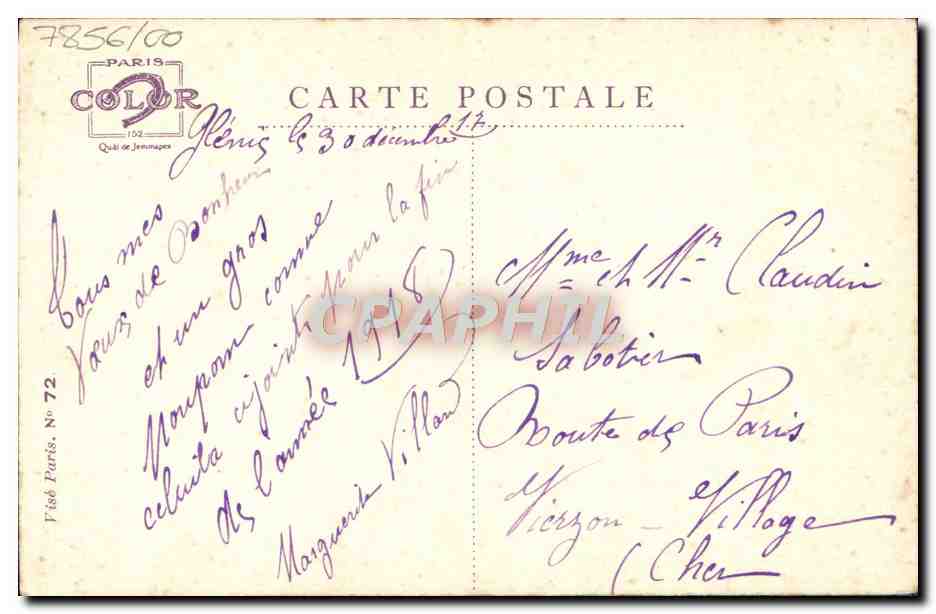 7856/00
PARIS
COLOR
152
Quai de Jemmapes
CARTE POSTALE
le 30 décembre 17
Tous mes
Vœux de Bonheur
et un gros
poupon comme
celuila ajointi pour la fin
de l'année 1918
Marguerite Villard
Mme et Mr Claudin
Sabotier
Route de Paris
Vierzon - Village
(Cher
Visé Paris. No 72
CPAPHIL